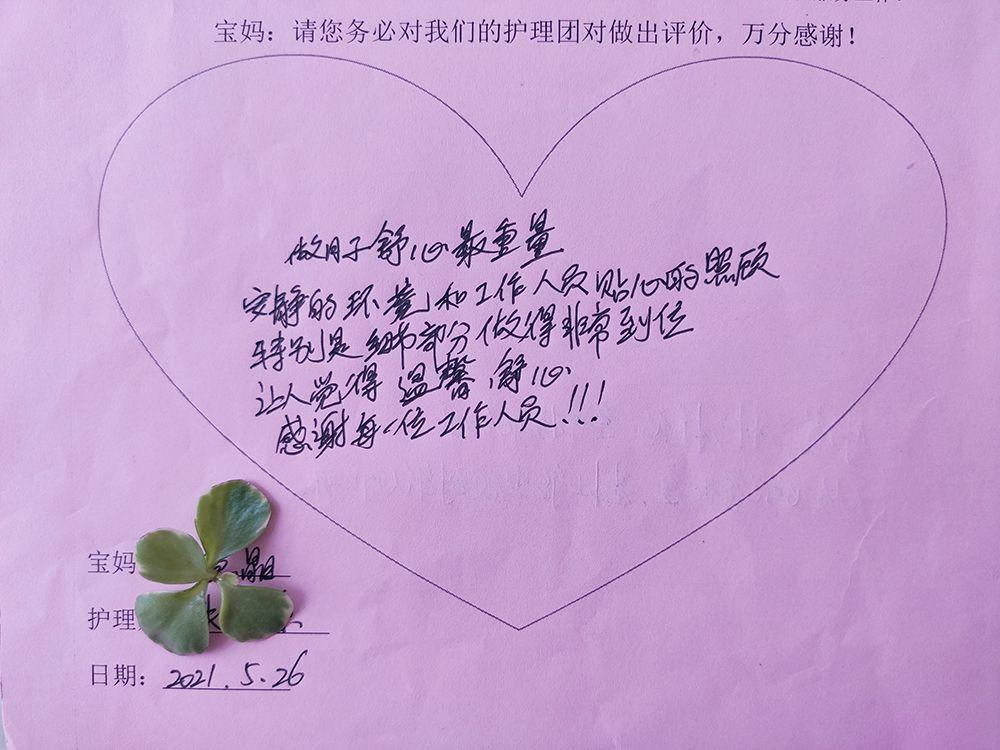 宝妈：请您务必对我们的护理团对做出评价，万分感谢！
做月子舒心最重量
安静的环境和工作人员贴心的照顾
特别是细节部分做得非常到位
让人觉得温馨，舒心
感谢每一位工作人员!!!
宝妈 晶
护理
日期：2021.5.26